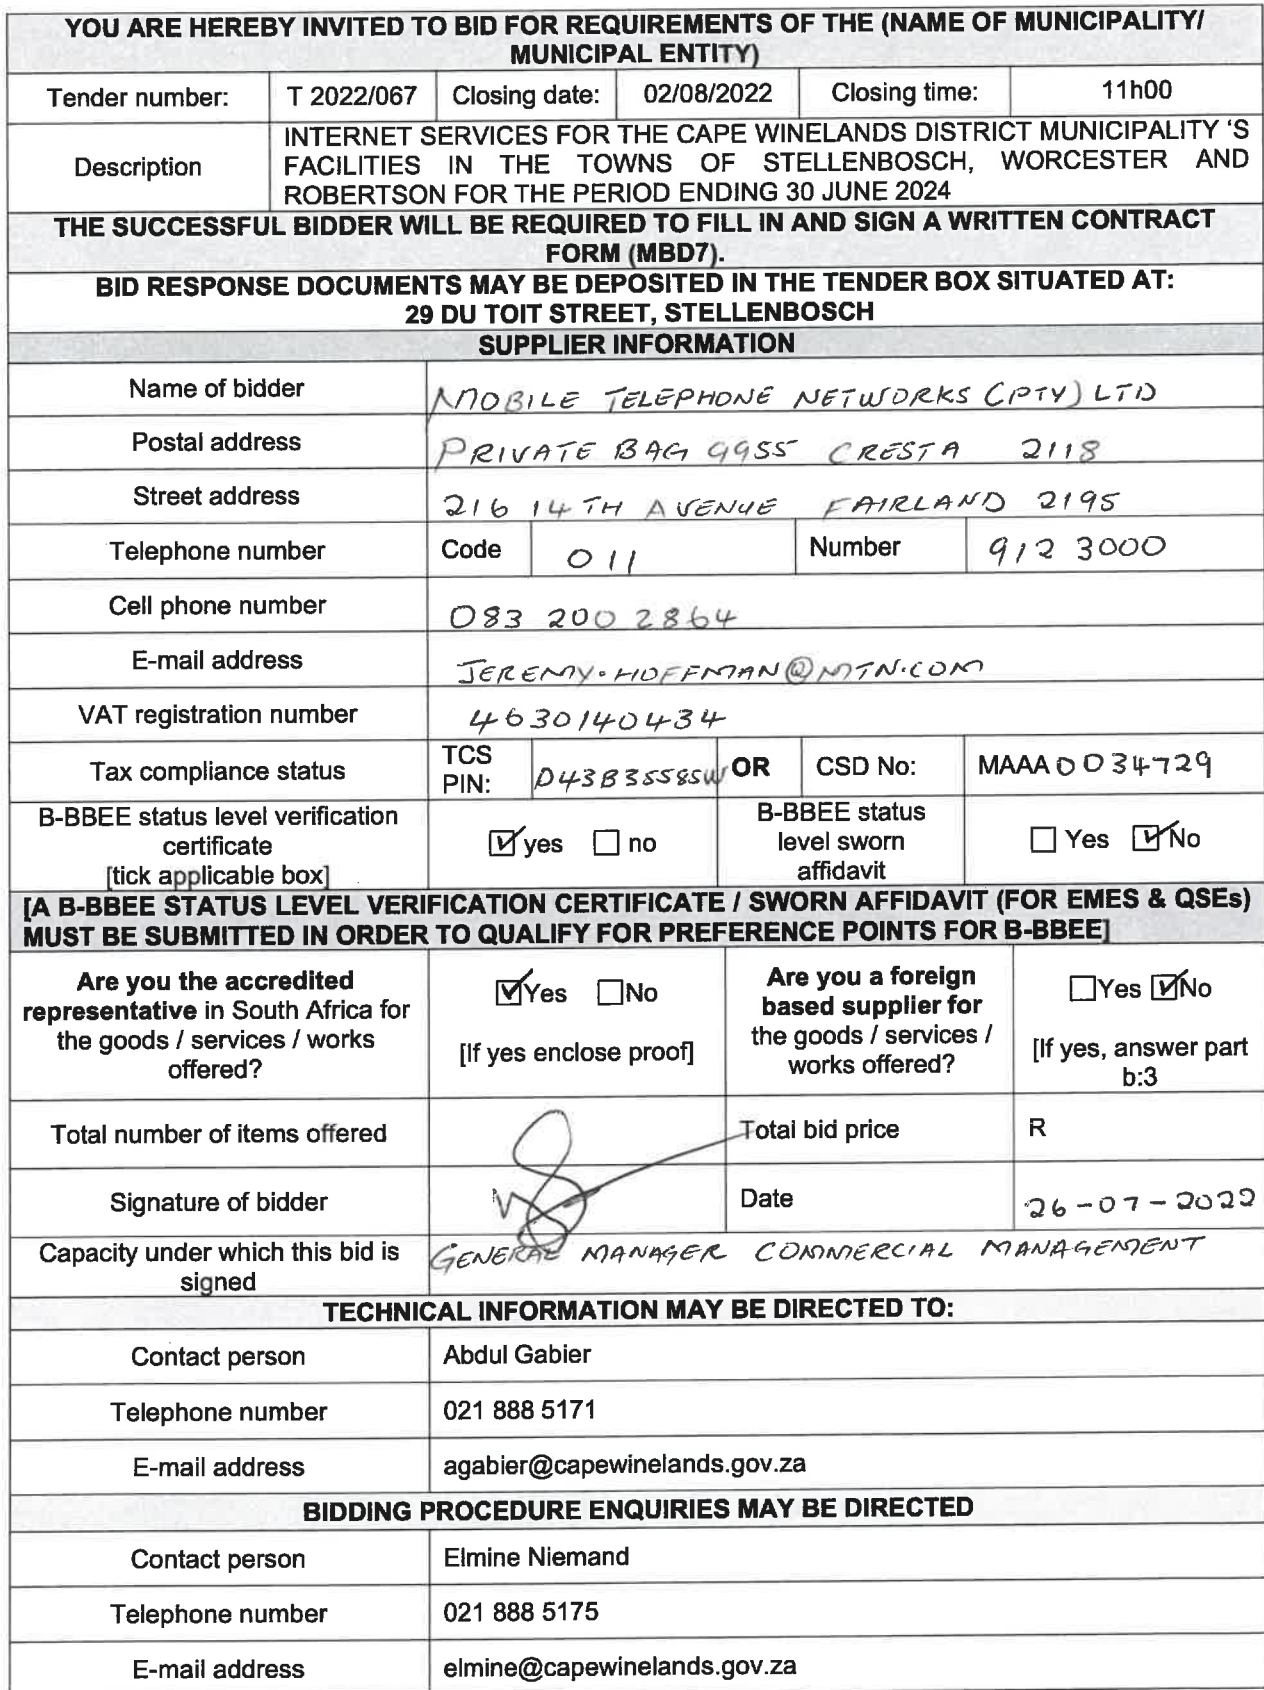 YOU ARE HEREBY INVITED TO BID FOR REQUIREMENTS OF THE (NAME OF MUNICIPALITY/
MUNICIPAL ENTITY)
Tender number: T 2022/067 Closing date: 02/08/2022 Closing time: 11h00
Description
INTERNET SERVICES FOR THE CAPE WINELANDS DISTRICT MUNICIPALITY 'S
FACILITIES IN THE TOWNS OF STELLENBOSCH, WORCESTER AND
ROBERTSON FOR THE PERIOD ENDING 30 JUNE 2024
THE SUCCESSFUL BIDDER WILL BE REQUIRED TO FILL IN AND SIGN A WRITTEN CONTRACT
FORM (MBD7).
BID RESPONSE DOCUMENTS MAY BE DEPOSITED IN THE TENDER BOX SITUATED AT:
29 DU TOIT STREET, STELLENBOSCH
SUPPLIER INFORMATION
Name of bidder MOBILE TELEPHONE NETWORKS (PTY) LTD
Postal address PRIVATE BAG 9955 CRESTA 2118
Street address 216 14TH AVENUE FAIRLAND 2195
Telephone number Code 011 Number 912 3000
Cell phone number 083 200 2864
E-mail address JEREMY.HOFFMAN@MTN.COM
VAT registration number 4630140434
Tax compliance status
TCS
PIN:
D43B35585W OR CSD No: MAAA 0034729
B-BBEE status level verification
certificate
[tick applicable box]
yes no
B-BBEE status
level sworn
affidavit
Yes No
[A B-BBEE STATUS LEVEL VERIFICATION CERTIFICATE / SWORN AFFIDAVIT (FOR EMES & QSEs)
MUST BE SUBMITTED IN ORDER TO QUALIFY FOR PREFERENCE POINTS FOR B-BBEE]
Are you the accredited
representative in South Africa for
the goods / services / works
offered?
Yes No
[If yes enclose proof]
Are you a foreign
based supplier for
the goods / services /
works offered?
Yes No
[If yes, answer part
b:3
Total number of items offered Total bid price R
Signature of bidder Date 26-07-2022
Capacity under which this bid is
signed
GENERAL MANAGER COMMERCIAL MANAGEMENT
TECHNICAL INFORMATION MAY BE DIRECTED TO:
Contact person Abdul Gabier
Telephone number 021 888 5171
E-mail address agabier@capewinelands.gov.za
BIDDING PROCEDURE ENQUIRIES MAY BE DIRECTED
Contact person Elmine Niemand
Telephone number 021 888 5175
E-mail address elmine@capewinelands.gov.za